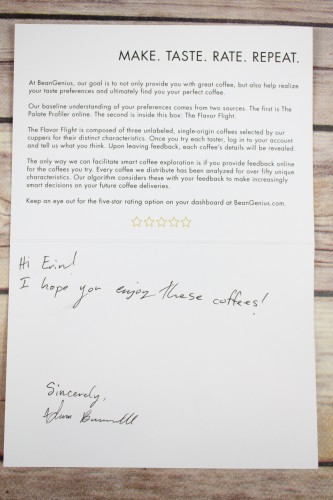 MAKE. TASTE. RATE. REPEAT.
At BeanGenius, our goal is to not only provide you with great coffee, but also help realize
your taste preferences and ultimately find you your perfect coffee.
Our baseline understanding of your preferences comes from two sources. The first is The
Palate Profiler online. The second is inside this box: The Flavor Flight.
The Flavor Flight is composed of three unlabeled, single-origin coffees selected by our
cuppers for their distinct characteristics. Once you try each taster, log in to your account
and tell us what you think. Upon leaving feedback, each coffee's details will be revealed.
The only way we can facilitate smart coffee exploration is if you provide feedback online
for the coffees you try. Every coffee we distribute has been analyzed for over fifty unique
characteristics. Our algorithm considers these with your feedback to make increasingly
smart decisions on your future coffee deliveries.
Keep an eye out for the five-star rating option on your dashboard at BeanGenius.com.
Hi Erin!
I hope you enjoy these coffees!
Sincerely,